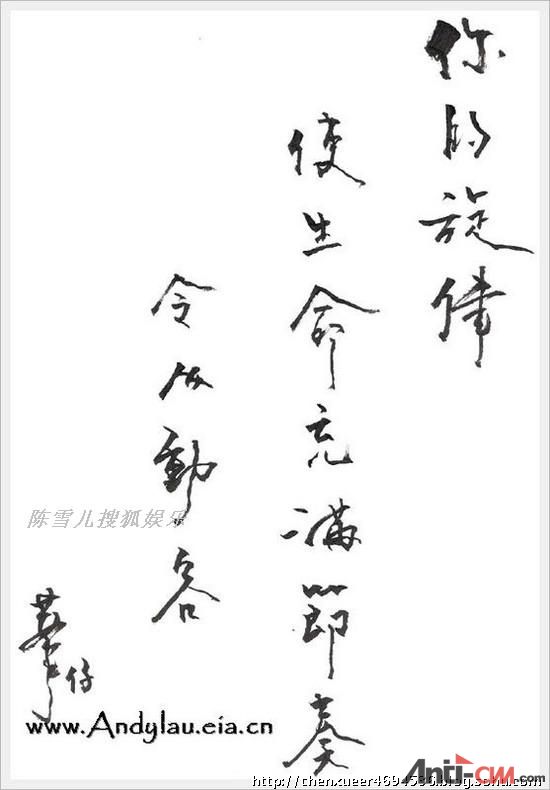 你的旋律
使生命充滿節奏
令人動容
華仔
陈雪儿搜狐娱乐
www.Andylau.eia.cn
Anti-CNN.com
http://chenxueer4694536.blog.sohu.com/